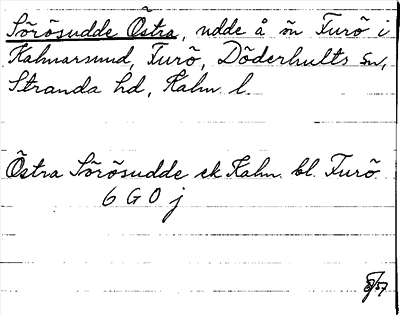 Sörösudde Östra, udde å ön Furö i
Kalmarsund, Furö, Döderhults sn,
Stranda hd, Kalm. l.
Östra Sörösudde ek Kalm. bl. Furö
6 G 0 j